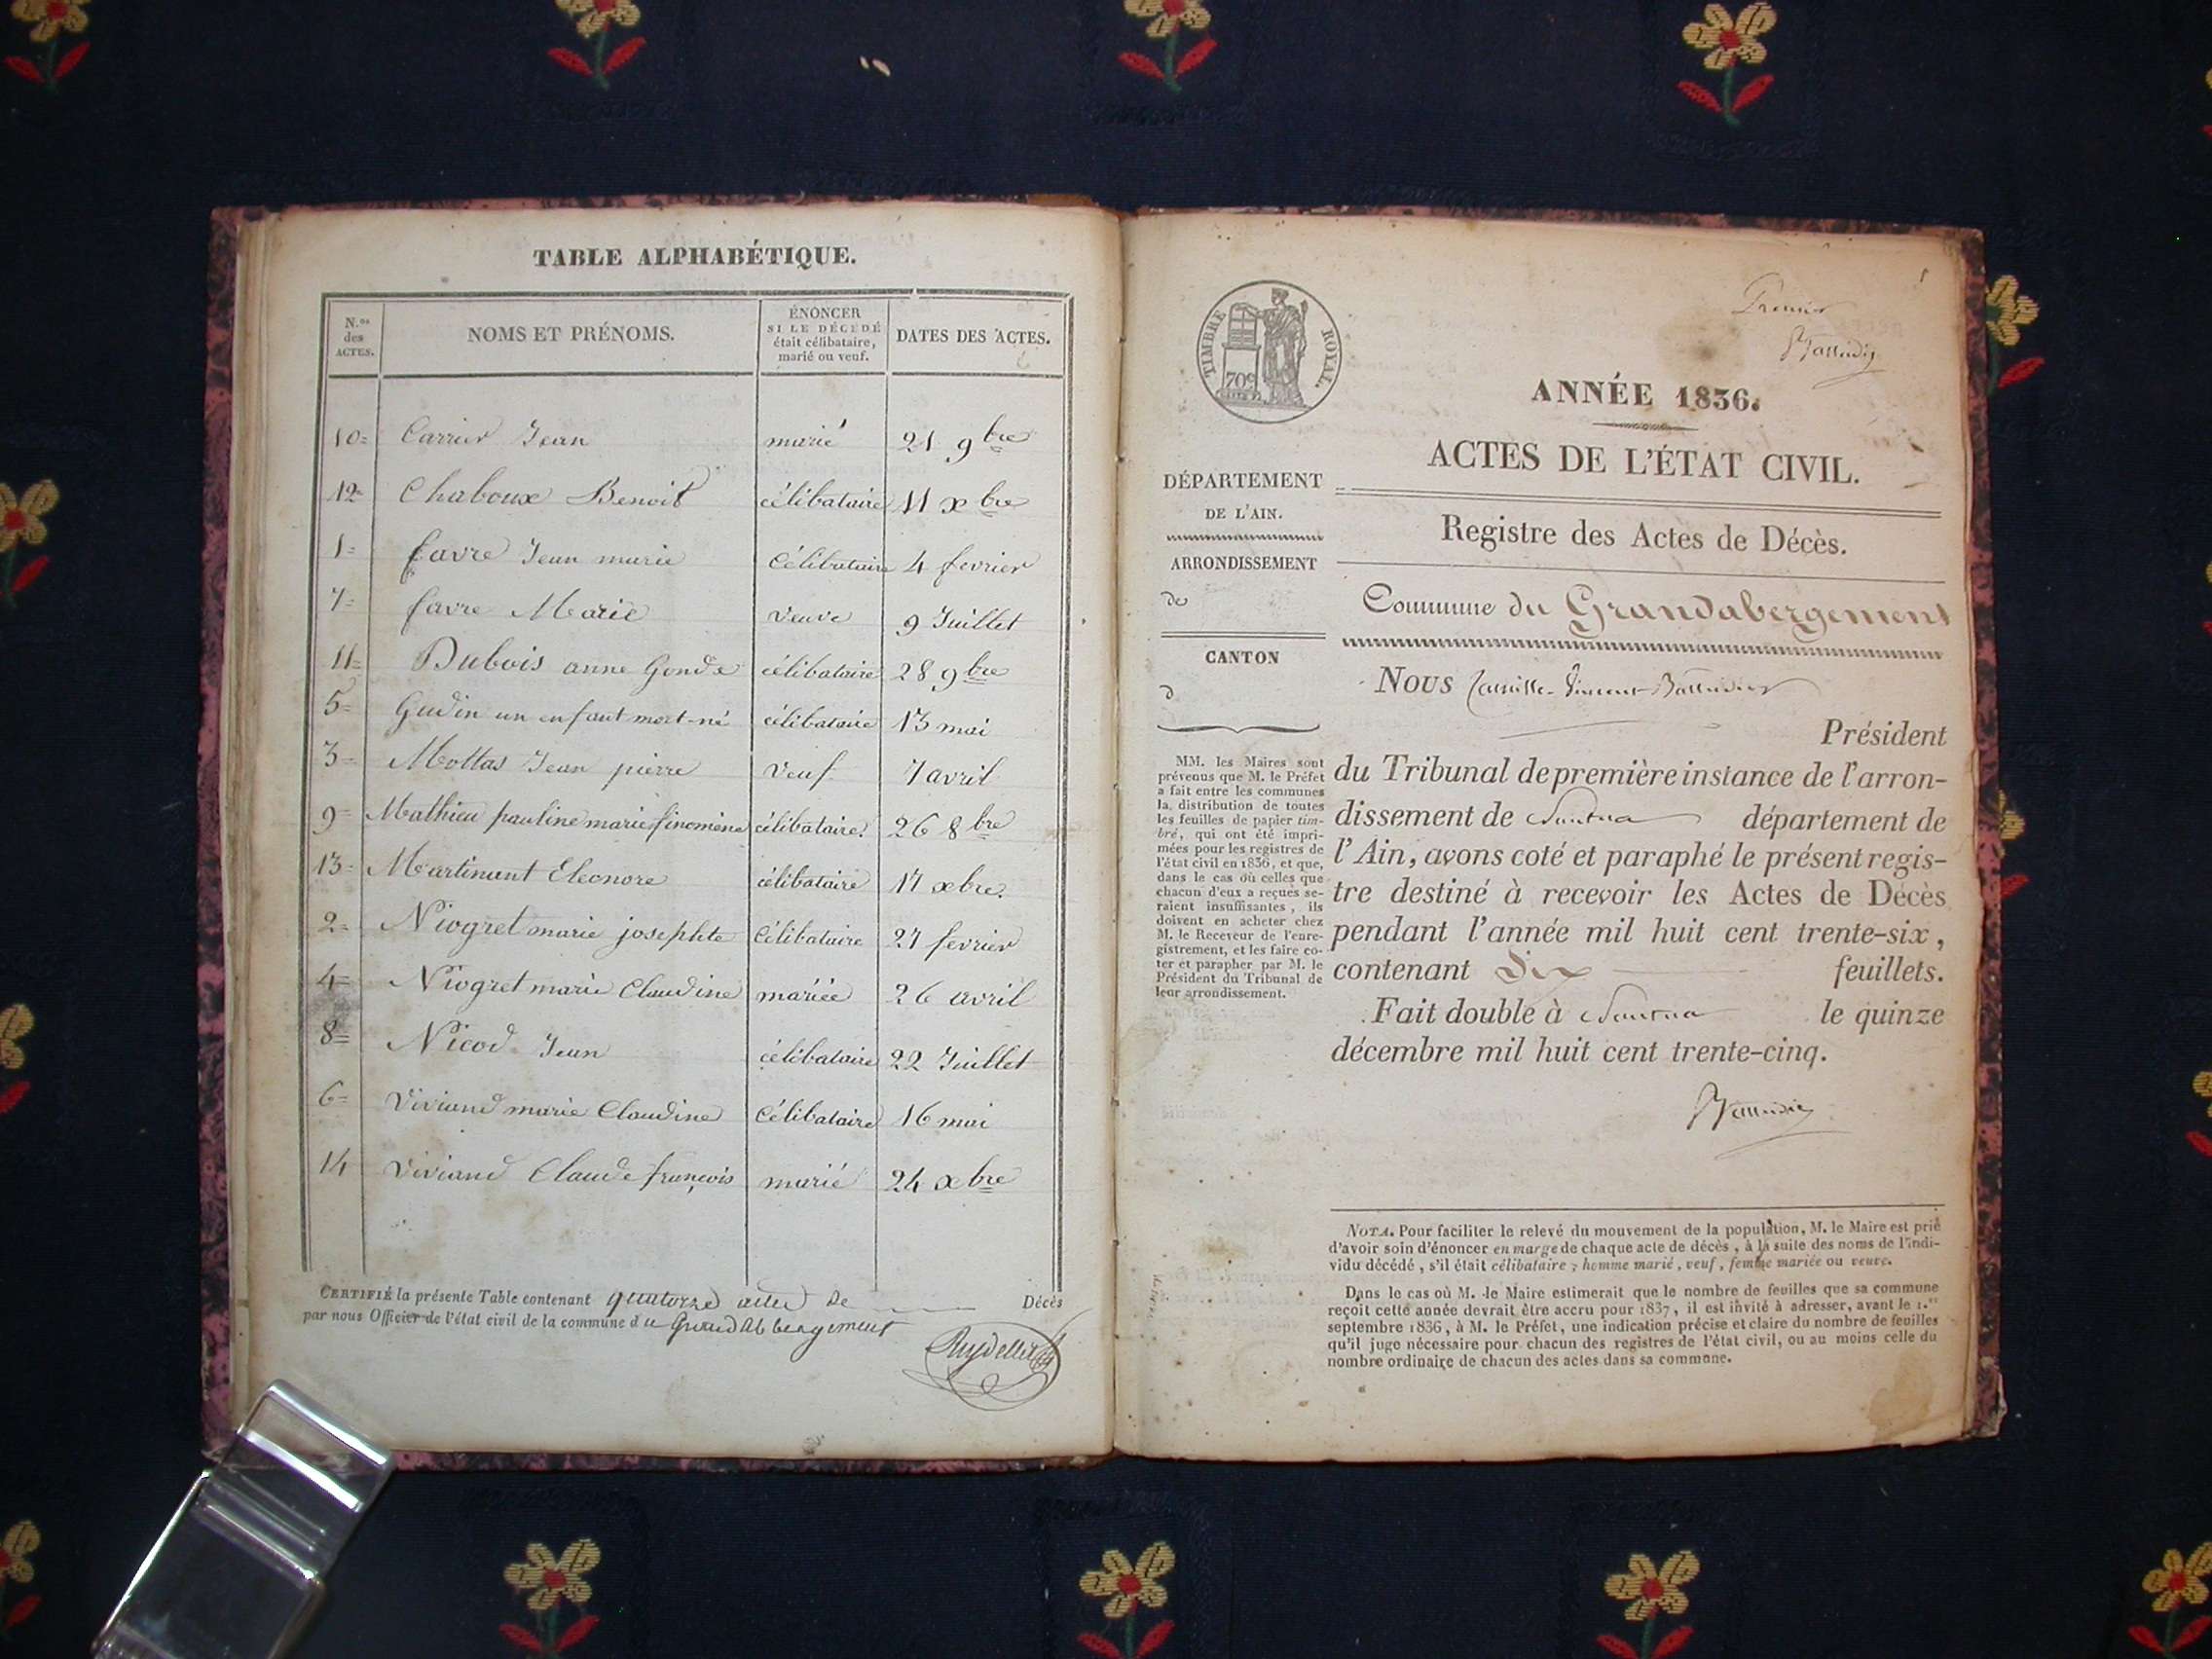 TABLE ALPHABÉTIQUE.
N.os des ACTES.
NOMS ET PRÉNOMS.
ÉNONCER SI LE DÉCÉDÉ était célibataire, marié ou veuf.
DATES DES ACTES.
10= Carrier Jean marié 21 9bre
12= Chaboux Benoit célibataire 11 xbre
1= favre Jean marie Célibataire 4 fevrier
7= favre Marie veuve 9 Juillet
11= Dubois anne Gonde célibataire 28 9bre
5= Gudin un enfant mort-né célibataire 13 mai
3= Mottas Jean pierre veuf 7 avril
9= Mathieu pauline marie finomène célibataire. 26 8bre
13= Martinant Eleonore célibataire 17 xbre.
2= Niogret marie josephte Célibataire 27 fevrier
4= Niogret marie Claudine mariée 26 avril
8= Nicod Jean célibataire 22 Juillet
6= Viviand marie Claudine Célibataire 16 mai
14 Viviand Claude françois marié 24 xbre
CERTIFIÉ la présente Table contenant quatorze actes de Décès
par nous Officier de l'état civil de la commune du Grand Abbergement
Premier
TIMBRE ROYAL.
70c
ANNÉE 1836.
ACTES DE L'ÉTAT CIVIL.
Registre des Actes de Décès.
Commune du Grandabergement
DÉPARTEMENT
DE L'AIN.
ARRONDISSEMENT
de
CANTON
d
MM. les Maires sont
prévenus que M. le Préfet
a fait entre les communes
la distribution de toutes
les feuilles de papier tim-
bré, qui ont été impri-
mées pour les registres de
l'état civil en 1836, et que,
dans le cas où celles que
chacun d'eux a reçues se-
raient insuffisantes, ils
doivent en acheter chez
M. le Receveur de l'enre-
gistrement, et les faire co-
ter et parapher par M. le
Président du Tribunal de
leur arrondissement.
Nous Camille-Vincent
Président
du Tribunal de première instance de l'arron-
dissement de Nantua département de
l'Ain, avons coté et paraphé le présent regis-
tre destiné à recevoir les Actes de Décès
pendant l'année mil huit cent trente-six,
contenant Six feuillets.
Fait double à Nantua le quinze
décembre mil huit cent trente-cinq.
NOTA. Pour faciliter le relevé du mouvement de la population, M. le Maire est prié
d'avoir soin d'énoncer en marge de chaque acte de décès, à la suite des noms de l'indi-
vidu décédé, s'il était célibataire, homme marié, veuf, femme mariée ou veuve.
Dans le cas où M. le Maire estimerait que le nombre de feuilles que sa commune
reçoit cette année devrait être accru pour 1837, il est invité à adresser, avant le 1.er
septembre 1836, à M. le Préfet, une indication précise et claire du nombre de feuilles
qu'il juge nécessaire pour chacun des registres de l'état civil, ou au moins celle du
nombre ordinaire de chacun des actes dans sa commune.